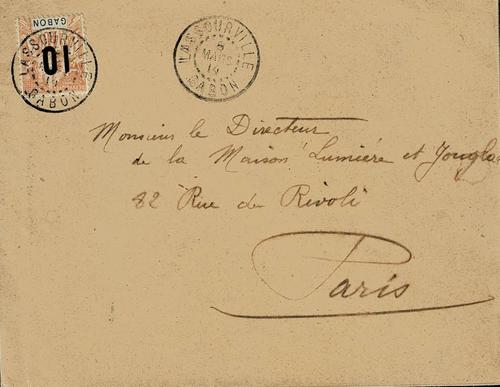 GABON
10
LASSOURVILLE
GABON
LASSOURVILLE
8
MARS
14
GABON
Monsieur le Directeur
de la Maison "Lumière et Jougla
82 Rue de Rivoli
Paris